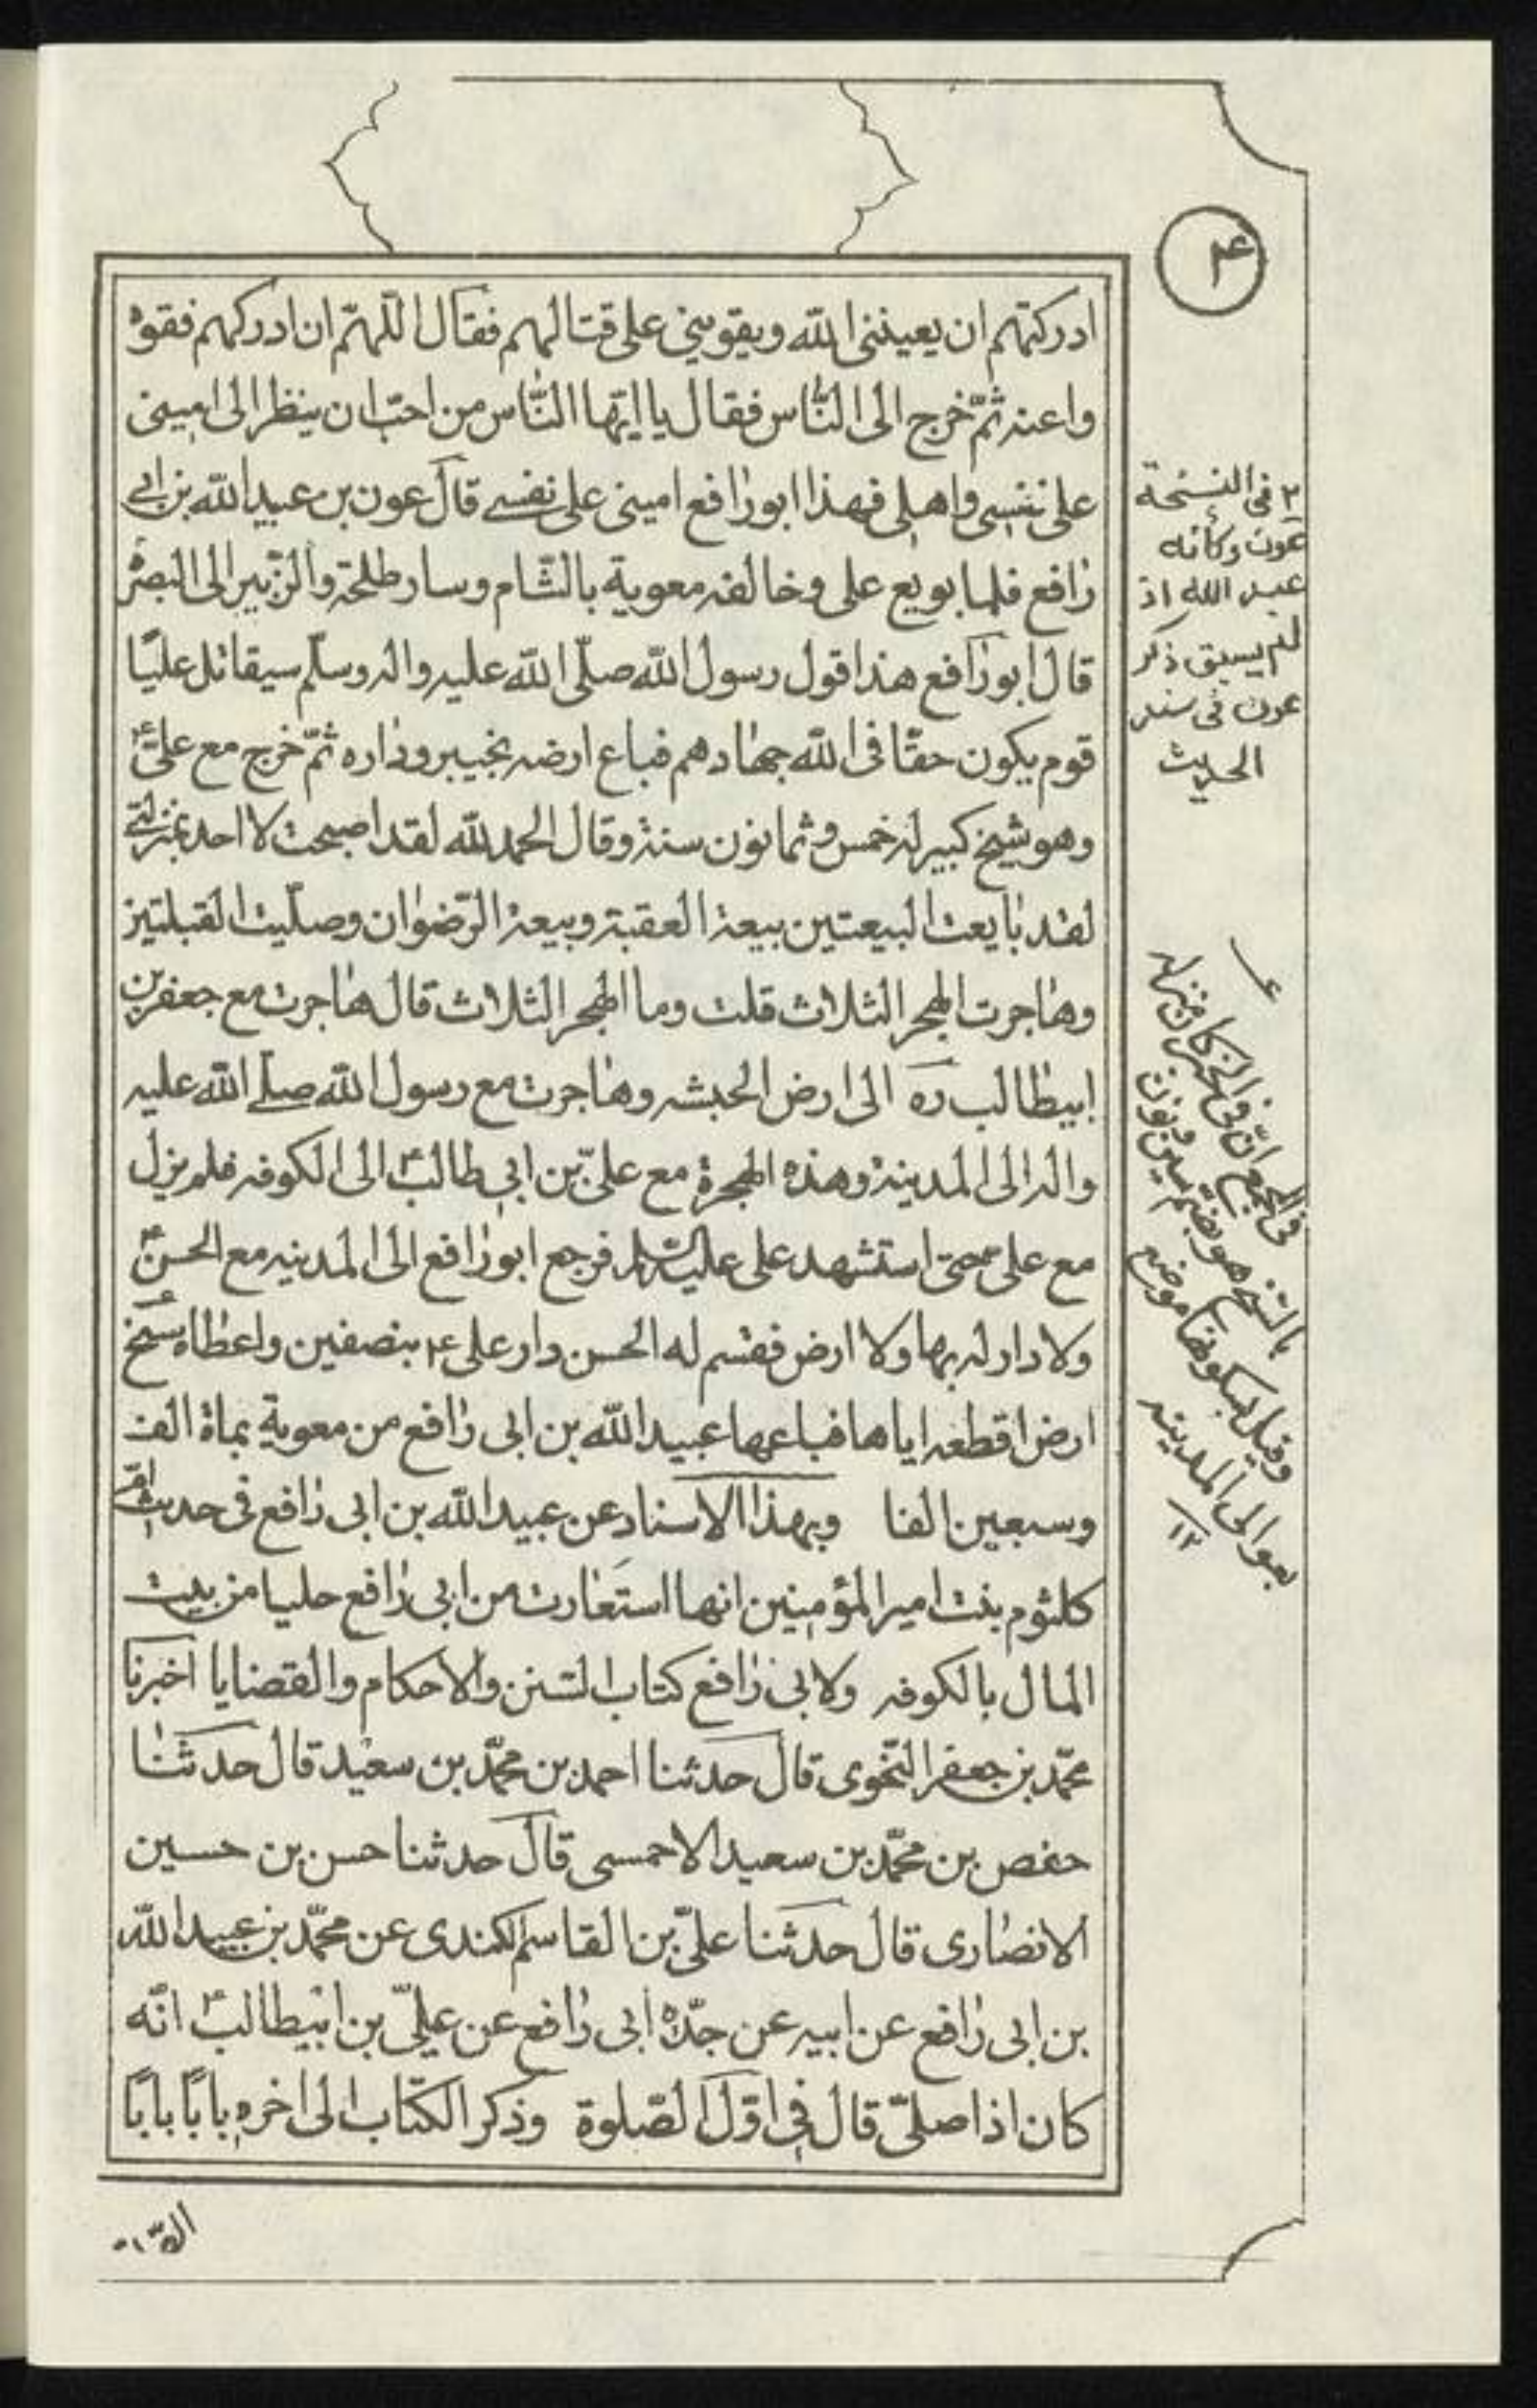 ۴
ادركتهم ان يعيننى الله ويقوينى على قتالهم فقال اللهمّ ان ادركهم فقوه
واعنه ثمّ خرج الى النّاس فقال يا ايّها النّاس من احبّ ان ينظر الى امينى
على نفسى واهلى فهذا ابورافع امينى على نفسى قال عون بن عبيد الله بن ابى
رافع فلما بويع على وخالفه معوية بالشّام وسار طلحة والزّبير الى البصرة
قال ابورافع هذا قول رسول الله صلّى الله عليه واله وسلّم سيقاتل عليّا
قوم يكون حقّا فى الله جهادهم فباع ارضه بخيبر وداره ثمّ خرج مع علىّ ۴
وهو شيخ كبير له خمس وثمانون سنة وقال الحمد لله لقد اصبحت لا احد بمنزلتى
لقد بايعت البيعتين بيعة العقبة وبيعة الرّضوان وصلّيت القبلتين
وهاجرت الهجر الثلاث قلت وما الهجر الثلاث قال هاجرت مع جعفر بن
ابيطالب ره الى ارض الحبشه وهاجرت مع رسول الله صلى الله عليه
واله الى المدينة وهذه الهجرة مع علىّ بن ابى طالب ۴ الى الكوفه فلم يزل
مع على حتى استشهد على عليه السّلم فرجع ابورافع الى المدينه مع الحسن ۴
ولا دار له بها ولا ارض فقسم له الحسن دار على ۴ بنصفين واعطاه سنح
ارض اقطعه اياها فباعها عبيد الله بن ابى رافع من معوية بماة الف
وسبعين الفا وبهذا الاسناد عن عبيد الله بن ابى رافع فى حديث امّ
كلثوم بنت امير المؤمنين انها استعارت من ابى رافع حليا من بيت
المال بالكوفه ولابى رافع كتاب السّنن والاحكام والقضايا اخبرنا
محمّد بن جعفر النّحوى قال حدثنا احمد بن محمّد بن سعيد قال حدثنا
حفص بن محمّد بن سعيد الاحمسى قال حدثنا حسن بن حسين
الانصارى قال حدثنا علىّ بن القاسم الكندى عن محمّد بن عبيد الله
بن ابى رافع عن ابيه عن جدّه ابى رافع عن علىّ بن ابيطالب ۴ انّه
كان اذا صلىّ قال فى اوّل الصّلوة وذكر الكتاب الى اخره بابًا بابًا
٢ فى النسخة
عون وكأنه
عبيد الله اذ
لم يسبق ذكر
عون فى سند
الحديث
فى المجمع انّ فى الخبر كان منزله
بالسّنح هو بضمّ سين ونون
وقيل بسكونها موضع
بعوالى المدينه
١٢